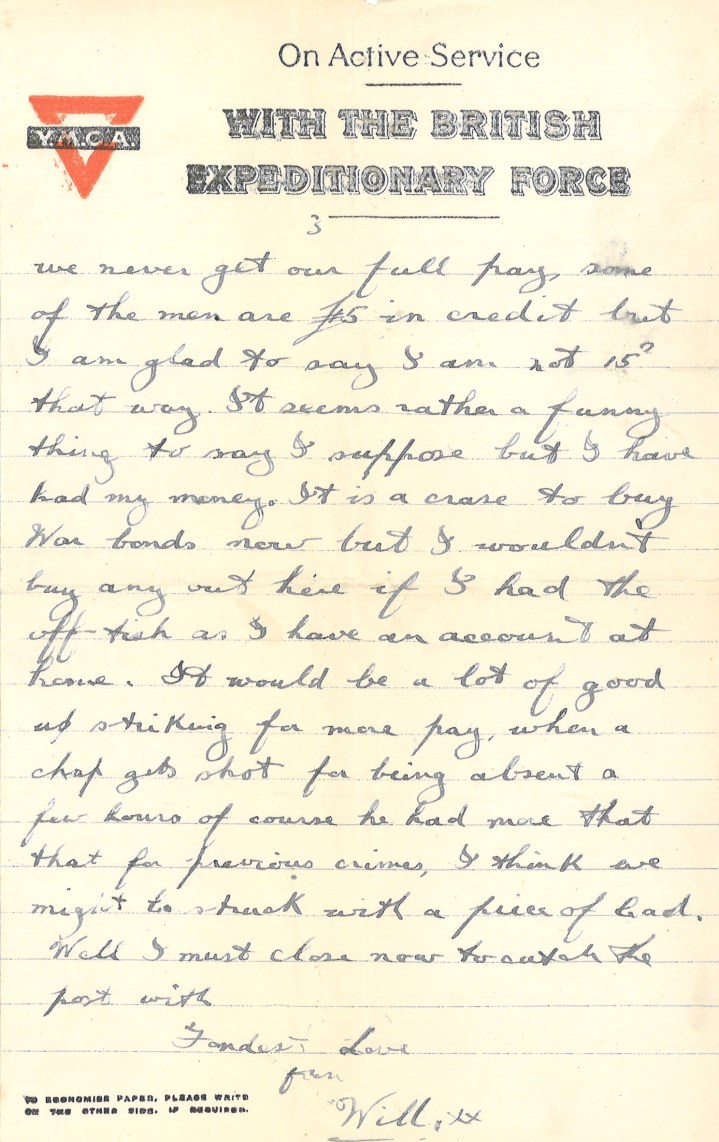 On Active Service
WITH THE BRITISH
Y.M.C.A.
EXPEDITIONARY FORCE
3
we never get our full pay, some
of the men are £5 in credit but
I am glad to say I am not 15?
that way. It seems rather a funny
thing to say I suppose but I have
had my money. It is a crase to buy
War bonds now but I wouldn't
buy any out here if I had the
off-tish as I have an account at
home. It would be a lot of good
us striking for more pay, when a
chap gets shot for being absent a
few hours of course he had more that
that for previous crimes, I think we
might be struck with a piece of lead.
Well I must close now to catch the
post with
Fondest Love
from
Will. xx
TO ECONOMISE PAPER, PLEASE WRITE
ON THE OTHER SIDE, IF REQUIRED.